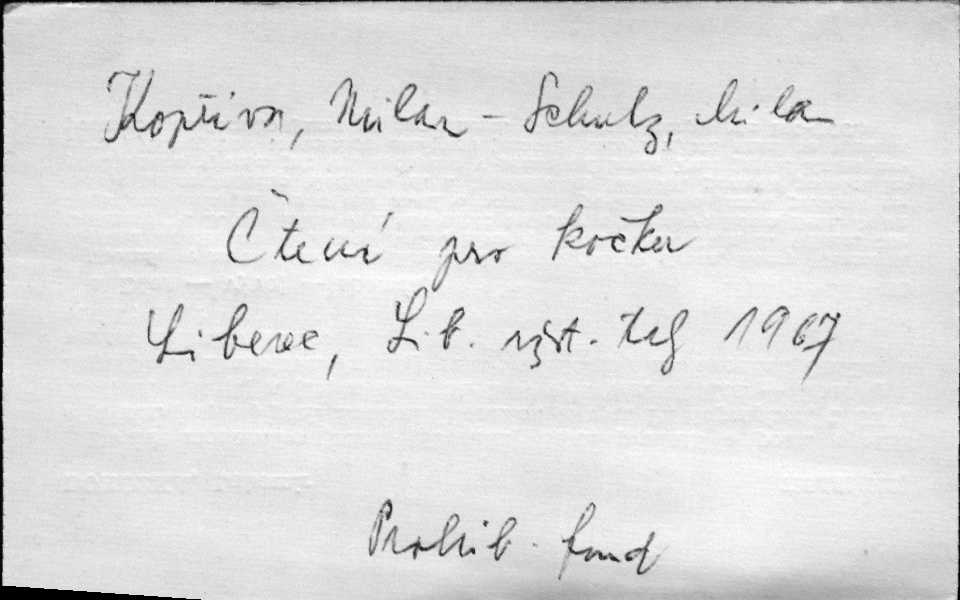 Kopřiva, Milan - Schulz, Milan
Čtení pro kočku
Liberec, Lib. výst. trhy 1967
Prohib. fond